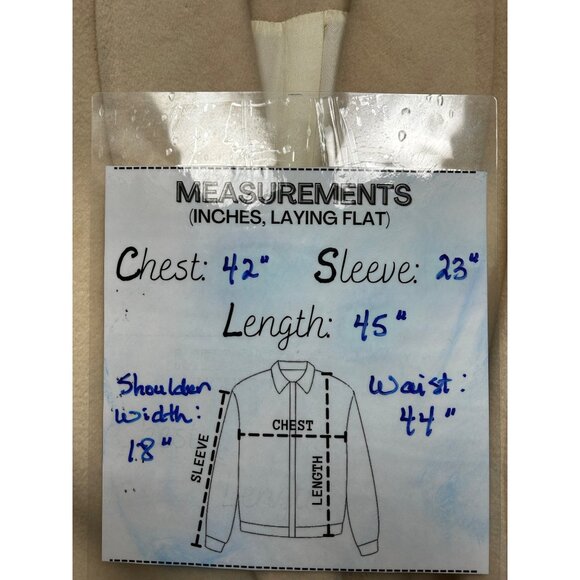 MEASUREMENTS
(INCHES, LAYING FLAT)
Chest: 42" Sleeve: 23"
Length: 45"
Shoulder
Width:
18"
Waist:
44"
SLEEVE
CHEST
LENGTH